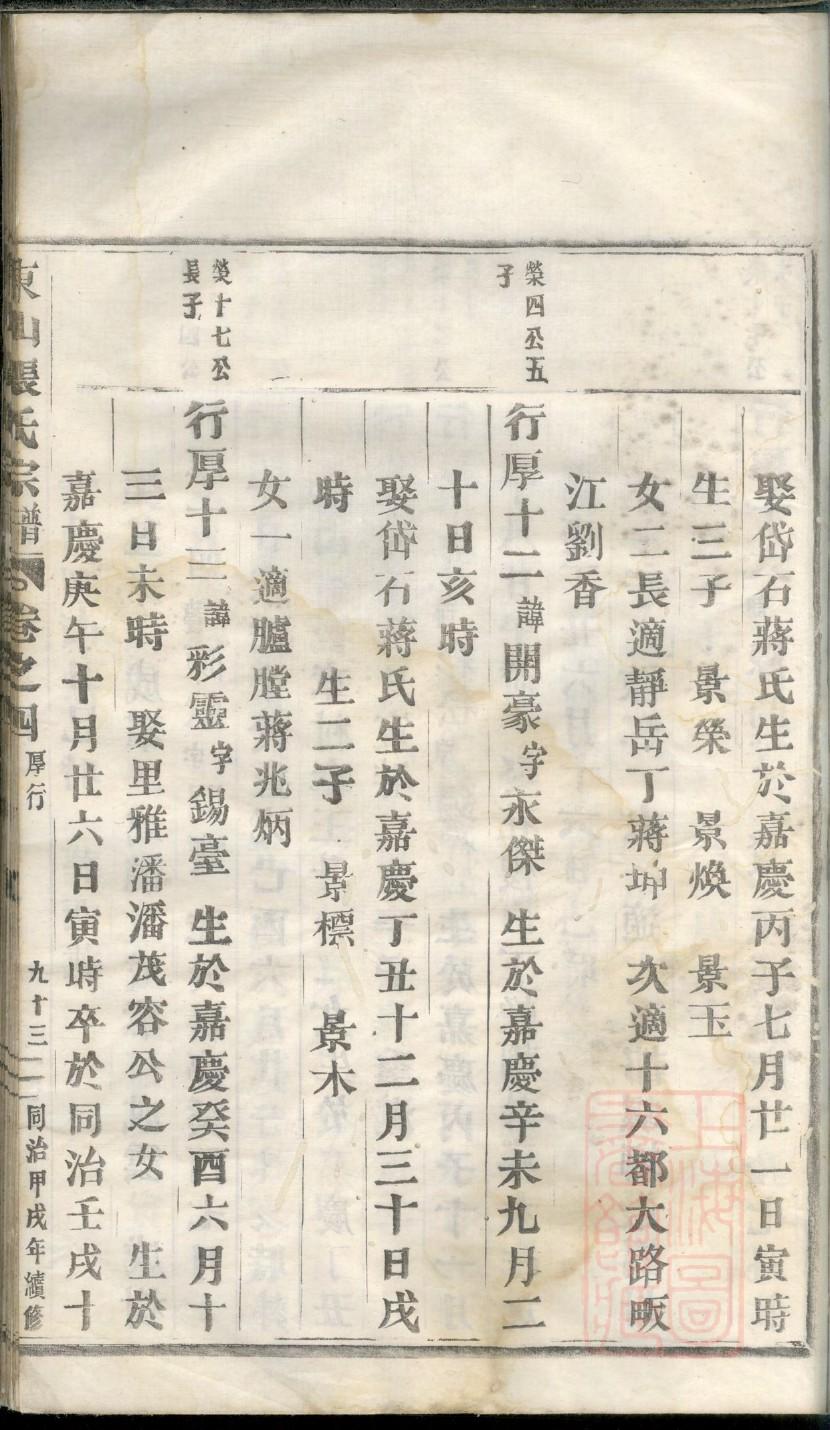 娶岱石蔣氏生於嘉慶丙子七月廿一日寅時
生三子 景榮 景煥 景玉
女二長適靜岳丁蔣坤 次適十六都大路畈
江劉香
榮四公五
子
行厚十二諱開豪字永傑 生於嘉慶辛未九月二
十日亥時
娶岱石蔣氏生於嘉慶丁丑十二月三十日戌
時 生二子 景標 景木
女一適臚膛蔣兆炳
榮十七公
長子
行厚十三諱彩靈字錫臺 生於嘉慶癸酉六月十
三日未時 娶里雅潘潘茂容公之女 生於
嘉慶庚午十月廿六日寅時卒於同治壬戌十
東山張氏宗譜 卷之四 厚行 九十三 同治甲戌年續修
上海圖
書館藏